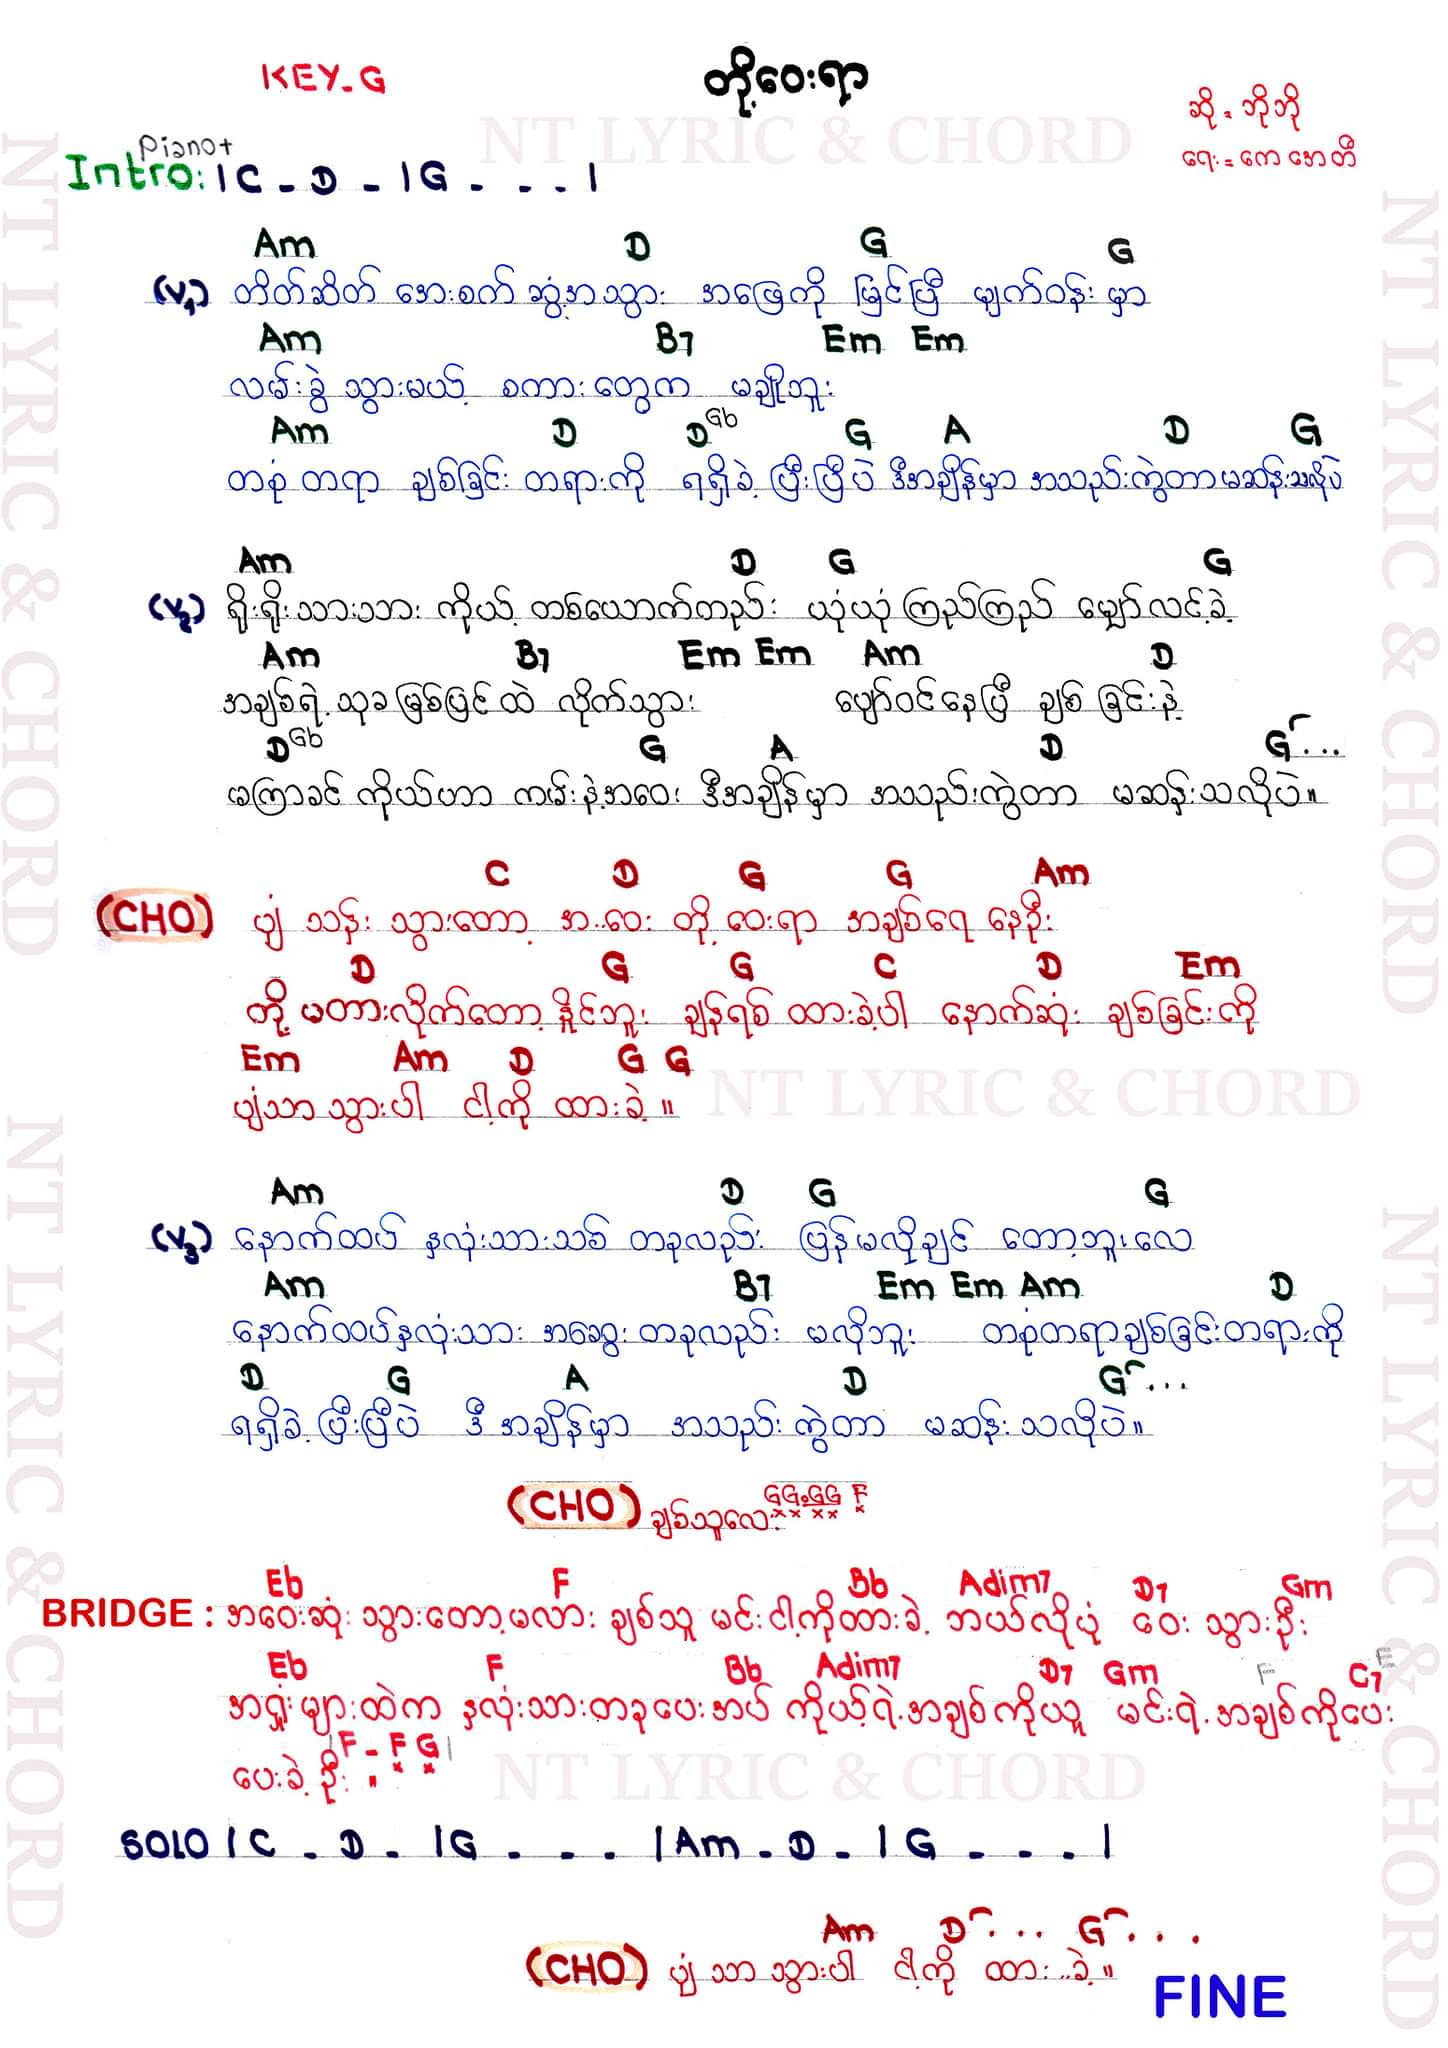 KEY-G
တို့ဝေးရာ
ဆို = ဘိုဘို
ရေး = ကေအေတီ
NT LYRIC & CHORD
Piano+
Intro: | C - D - | G - - - |
Am D G G
(V1) တိတ်ဆိတ် အေးစက် ဆွံ့အသွား အဖြေကို မြင်ပြီ မျက်ဝန်းမှာ
Am B7 Em Em
လမ်းခွဲ သွားမယ့် စကားတွေက မချိုဘူး
Am D DGb G A D G
တစုံတရာ ချစ်ခြင်း တရားကို ရရှိခဲ့ ပြီးပြီပဲ ဒီအချိန်မှာ အသည်းကွဲတာမဆန်းသလိုပဲ
Am D G G
(V2) ရိုးရိုးသားသား ကိုယ့် တစ်ယောက်တည်း ယုံယုံကြည်ကြည် မျှော်လင့်ခဲ့
Am B7 Em Em Am D
အချစ်ရဲ့ သုခမြစ်ပြင်ထဲ လိုက်သွား ပျော်ဝင်နေပြီ ချစ်ခြင်းနဲ့
DGb G A D G...
မကြာခင် ကိုယ်ဟာ ကမ်းနဲ့အဝေး ဒီအချိန်မှာ အသည်းကွဲတာ မဆန်းသလိုပဲ။
C D G G Am
(CHO) ပျံသန်း သွားတော့ အ..ဝေး တို့ ဝေးရာ အချစ်ရေ နေဦး
D G G C D Em
တို့ မတားလိုက်တော့ နှိုင်ဘူး ချန်ရစ် ထားခဲ့ပါ နောက်ဆုံး ချစ်ခြင်းကို
Em Am D G G
ပျံသာသွားပါ ငါ့ကို ထားခဲ့ ။
NT LYRIC & CHORD
Am D G G
(V3) နောက်ထပ် နှလုံးသားသစ် တခုလည်း ပြန်မလိုချင် တော့ဘူးလေ
Am B7 Em Em Am D
နောက်ထပ်နှလုံးသား အဆွေးတခုလည်း မလိုဘူး တစုံတရာချစ်ခြင်းတရားကို
D G A D G...
ရရှိခဲ့ ပြီးပြီပဲ ဒီအချိန်မှာ အသည်းကွဲတာ မဆန်းသလိုပဲ။
GG.GG F
(CHO) ချစ်သူလေး xx xx x
Eb F Bb Adim7 D7 Gm
BRIDGE : အဝေးဆုံး သွားတော့မလား ချစ်သူ မင်းငါ့ကိုထားခဲ့ ဘယ်လိုပုံ ဝေး သွားဦး
Eb F Bb Adim7 D7 Gm F C7 E
အရှုံးများထဲက နှလုံးသားတခုပေးအပ် ကိုယ့်ရဲ့အချစ်ကိုယူ မင်းရဲ့အချစ်ကိုပေး
| F - F G |
ပေးခဲ့ ဦး ။ x x
NT LYRIC & CHORD
SOLO | C - D - | G - - - | Am - D - | G - - - |
Am D... G...
(CHO) ပျံသာသွားပါ ငါ့ကို ထား..ခဲ့ ။
FINE
NT LYRIC & CHORD
NT LYRIC & CHORD
NT LYRIC & CHORD
NT LYRIC & CHORD